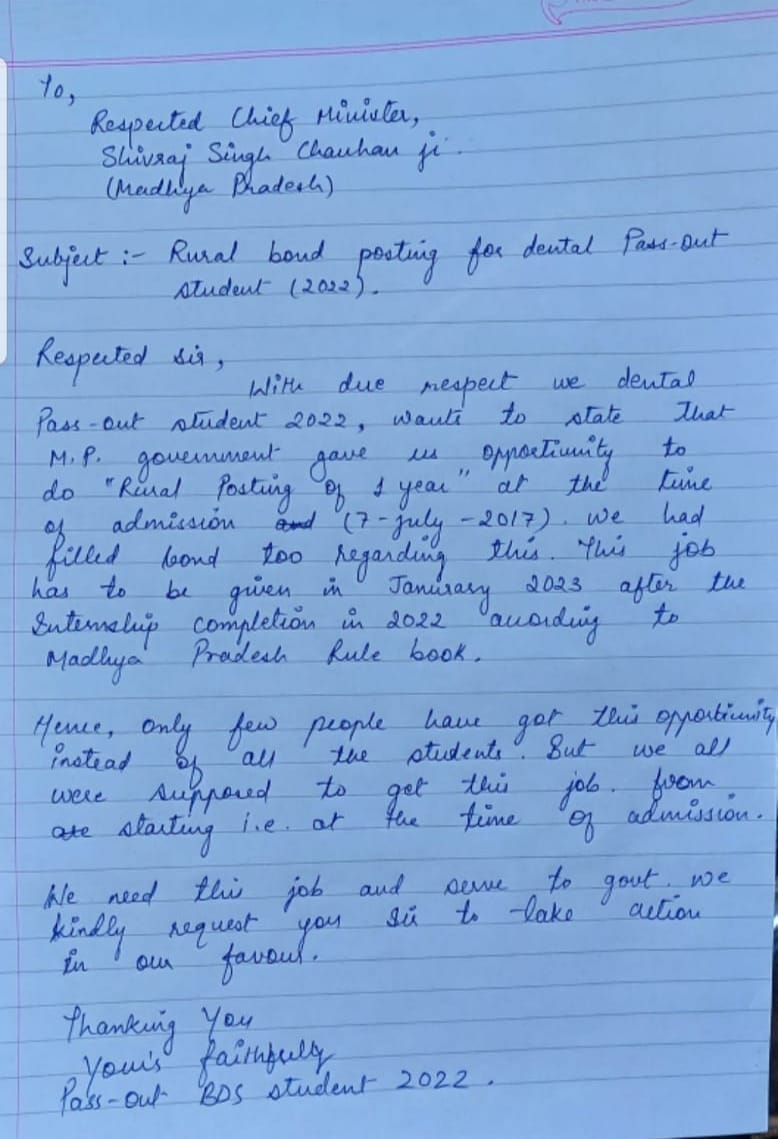 To,
Respected Chief Minister,
Shivraj Singh Chauhan ji.
(Madhya Pradesh)
Subject :- Rural bond posting for dental Pass-out
student (2022).
Respected sir,
With due respect we dental
Pass-out student 2022, wants to state that
M.P. government gave us opportiunity to
do "Rural Posting of 1 year" at the time
of admission and (7-July-2017). We had
filled bond too regarding this. This job
has to be given in Janurary 2023 after the
Internship completion in 2022 according to
Madhya Pradesh Rule book.
Hence, only few people have got this opportiunity
instead of all the students. But we all
were supposed to get this job. from
are starting i.e. at the time of admission.
We need this job and serve to govt. we
kindly request you sir to take action
in our favour.
Thanking You
Your's faithfully
Pass-out BDS student 2022.